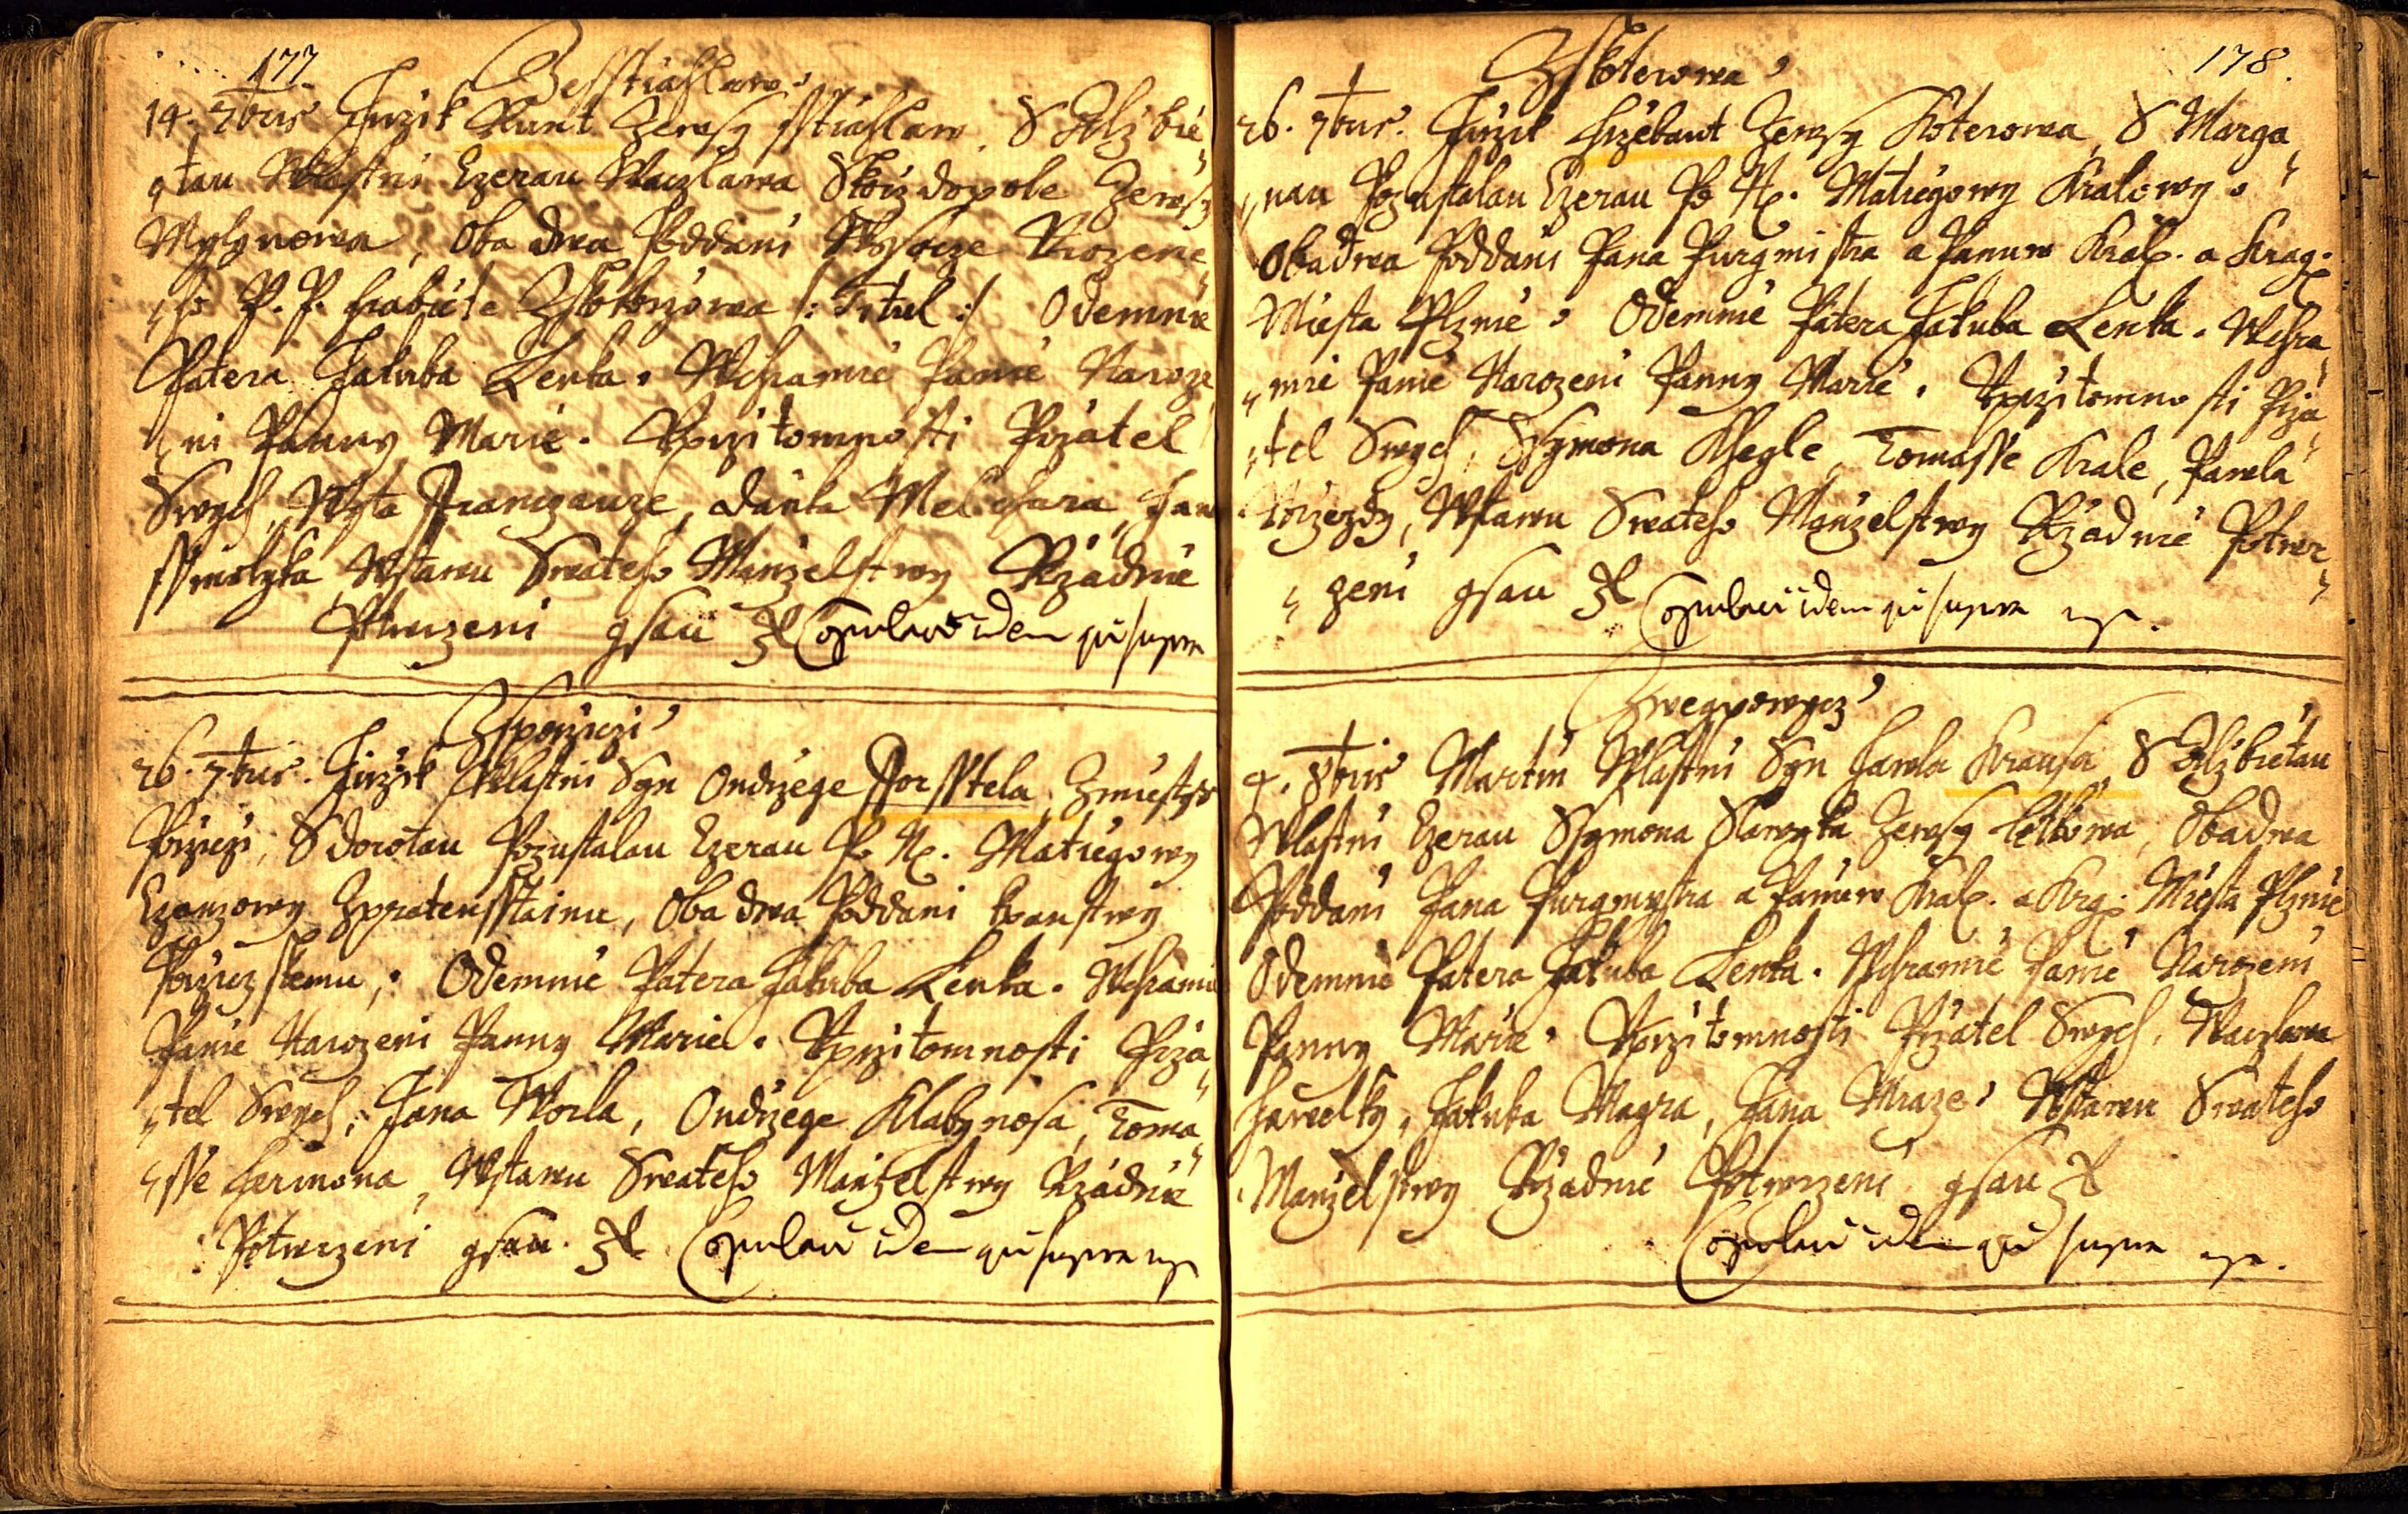 177
Zesstiahlaw
14. 7bris Jirzik Kunt Zewsy Sstiahlaw, S Alzbie„
„tau Wlastni Czerau Waczlawa Skoizdopole Zewsy
Mylynowa, Oba dwa Poddani Wysocze Urozene„
„ho P. P. Hrabiete Zkokorzowa /: Titul :/ Odemnie
Patera Jakuba Lenka. Wchramie Panie Naroze„
„ni Panny Marie. Vprzitomnosti Przatel
Swych, Wyta Franczauze, Dańka Melichara, Jana
Ssmolyka Wstawu Swateho Manzelstwy Rzadnie
Potwrzeni gsau Copulavi idem qui supra
Zporziczi
26. 7bris. Jirzik Wlastni Syn Ondrzege Forsstela, Zmiestys
Porziczi, S Dorotau Pozustalau Czerau Po N. Matiegowy
Zpratensstainu, Oba dwa Poddani kpanstwy
Porziczskemu, Odemnie Patera Jakuba Lenka. Wchramie
Panie Narozeni Panny Marie. Vprzitomnosti Prza„
„tel Swych, Jana Worla, Ondrzege Klabynosa, Toma„
„sse Hermona, Wstawu Swateho Manzelstwy Rzadnie
Potwrzeni gsau. Copulavi idem qui supra mp
178.
Zkoterowa
26. 7bris. Jirzik Hrzebant Zewsy Koterowa, S Marga„
„nau Pozustalau Czerau Po N. Matiegowy Kralowy
Obadwa Poddani Pana Purgmistra a Panuw Kral. a Krag.
Miesta Plznie Odemnie Patera Jakuba Lenka. Wchra„
„mie Panie Narozeni Panny Marie. Vprzitomnosti Prza„
„tel Swych, Ssymona Khegle, Tomasse Krale, Pawla
Wstawu Swateho Manzelstwy Rzadnie Potwr„
„zeni gsau Copulavi idem qui supra mp.
Zweypowycz
4. 8bris Martin Wlastni Syn Hawla Krausa, S Alzbietau
Wlastni Czerau Ssymona Slawyka Zewsy Letkowa, Obadwa
Poddani Pana Purgmystra a Panuw Kral. a Krg. Miesta Plznie
Odemnie Patera Jakuba Lenka. Wchramie Panie Narozeni
Panny Marie. Vprzitomnosti Przatel Swych, Waczlawa
Hawelky, Jakuba Magra, Jana Mraze Wstawu Swateho
Manzelstwy Rzadnie Potwrzeni gsau
Copulavi idem qui supra mp.